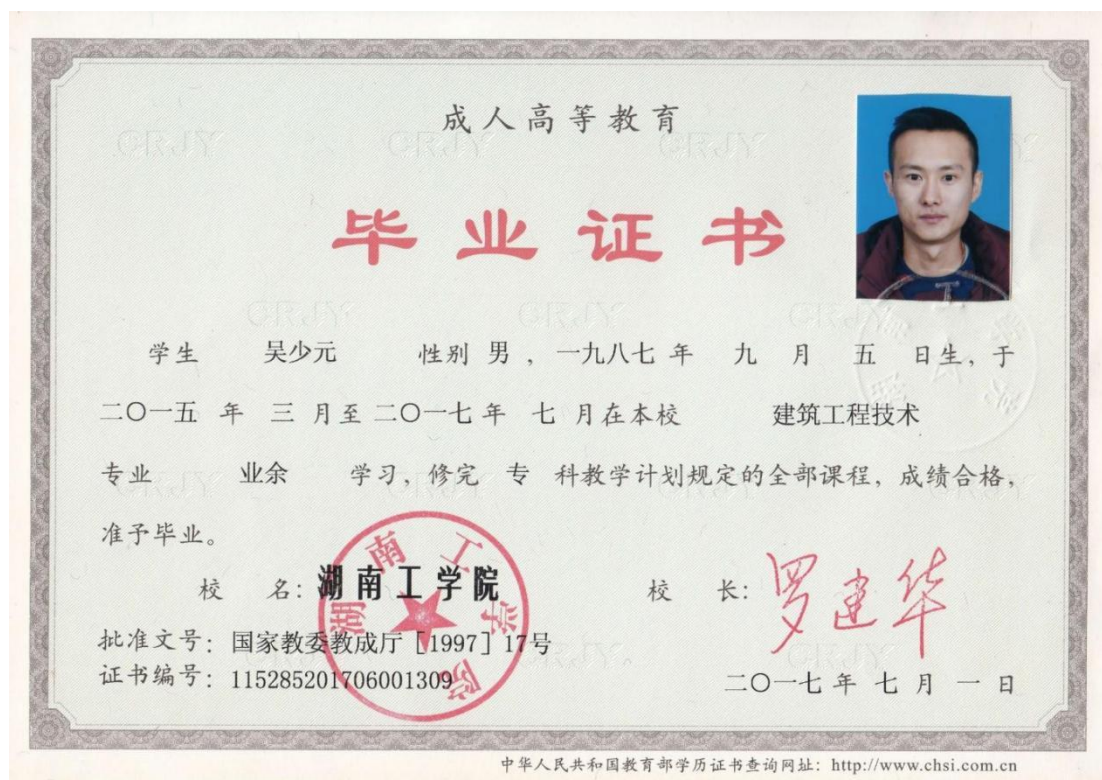 成人高等教育
毕业证书
学生 吴少元 性别 男 ，一九八七 年 九 月 五 日生，于
二〇一五 年 三 月至 二〇一七 年 七 月在本校 建筑工程技术
专业 业余 学习，修完 专 科教学计划规定的全部课程，成绩合格，
准予毕业。
校 名：湖南工学院 校 长：罗建华
湖南工学院
批准文号：国家教委教成厅［1997］17号
证书编号：115285201706001309
二〇一七 年 七 月 一 日
中华人民共和国教育部学历证书查询网址：http://www.chsi.com.cn
CRJY CRJY CRJY
CRJY CRJY CRJY